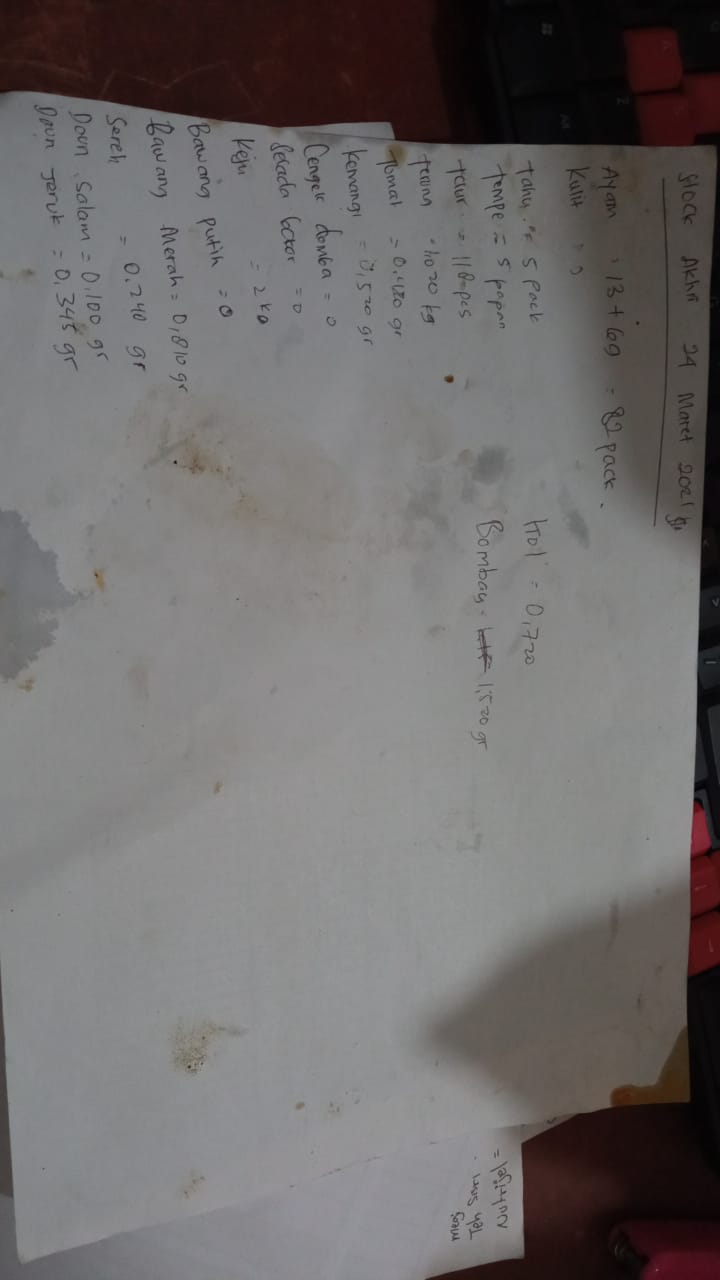 Stock Akhir 24 Maret 2021
Ayam : 13 + 69 = 82 pack.
Kulit = 0
tahu = 5 pack
tempe = 5 papan
telur = 118 pcs
terong = 1,020 kg
tomat = 0.420 gr
kemangi = 0,520 gr
Cengek domba = 0
Selada bokor = 0
Keju = 2 kg
Bawang putih = 0
Bawang Merah = 0,810 gr
Sereh = 0.240 gr
Daun Salam = 0.100 gr
Daun Jeruk = 0.345 gr
kol = 0,720
Bombay = 1,520 gr
Nutrigel =
Teh